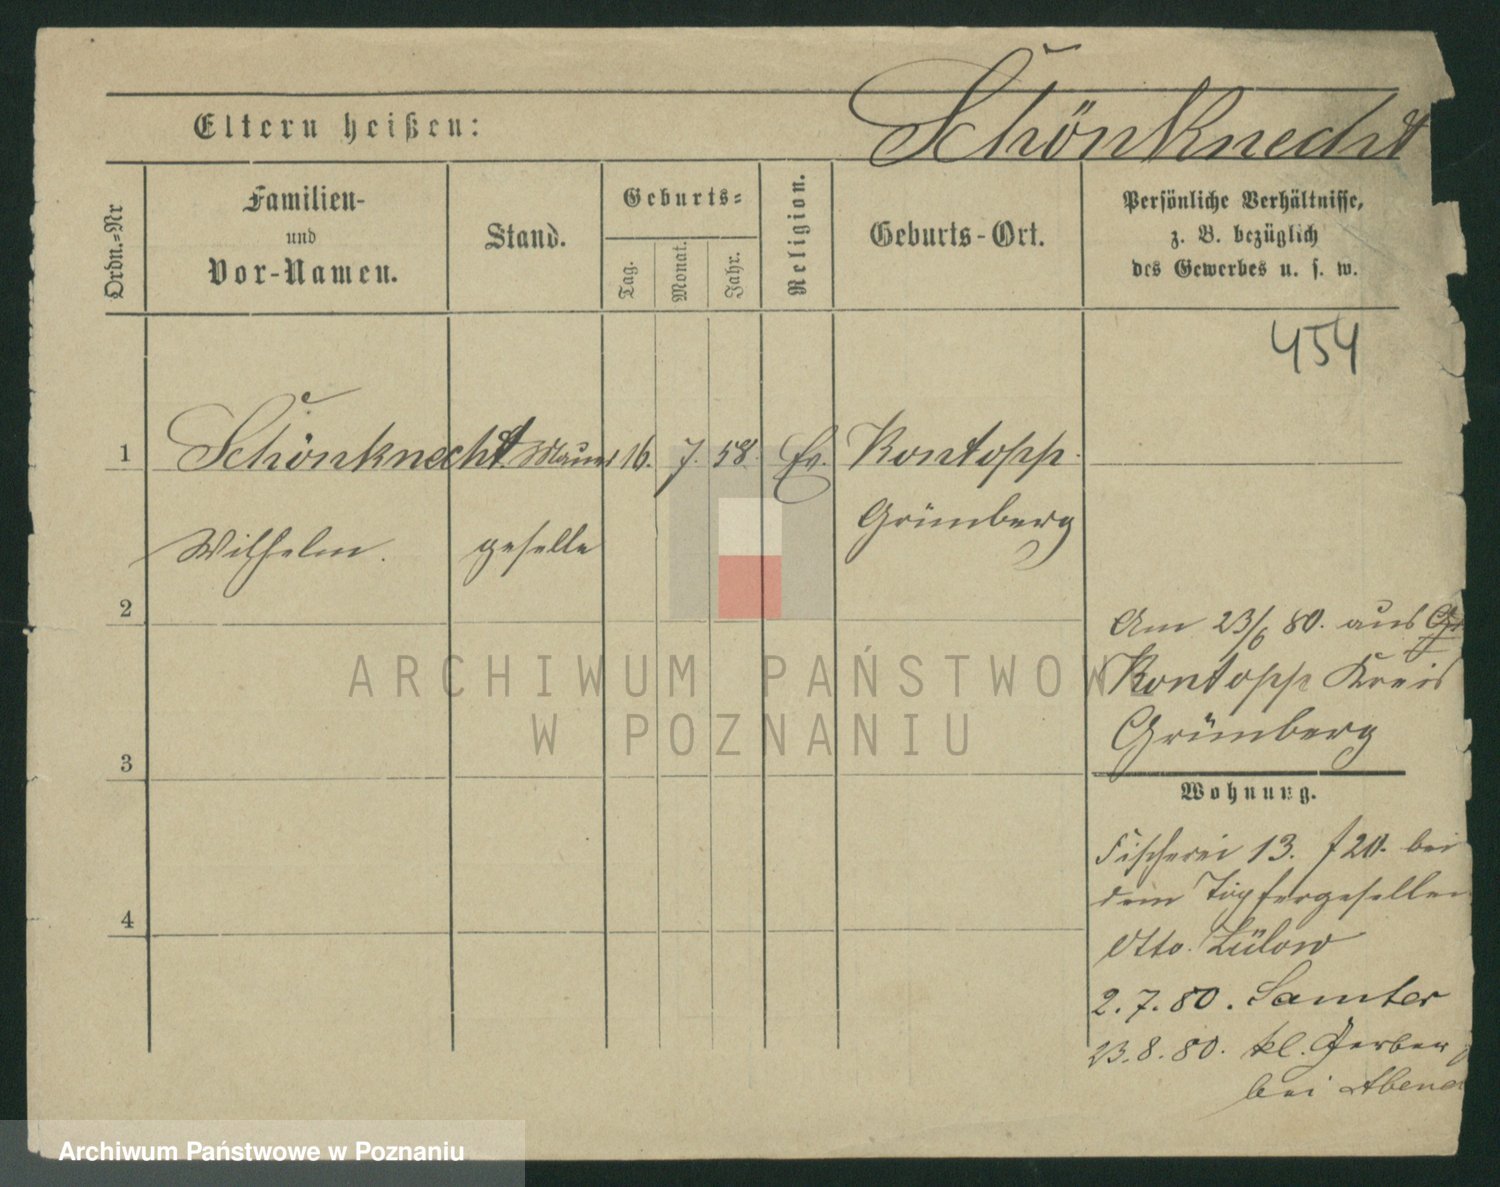 Eltern heißen:
Schönknecht
Ordn.=Nr
Familien-
und
Vor-Namen.
Stand.
Geburts=
Tag.
Monat.
Jahr.
Religion.
Geburts-Ort.
Persönliche Verhältnisse,
z. B. bezüglich
des Gewerbes u. s. w.
454
1 Schönknecht Maurer 16. 7. 58. Ev. Kontopp.
Grünberg
Wilhelm. geselle
2
Am 23/6 80. aus
Kontopp Kreis
Grünberg
3
Wohnung.
Fischerei 13. 20. bei
dem Töpfergesellen
4
Otto Lülow
2.7.80. Samter
23.8.80. kl. Gerber
bei
ARCHIWUM PAŃSTWOWE
W POZNANIU
Archiwum Państwowe w Poznaniu